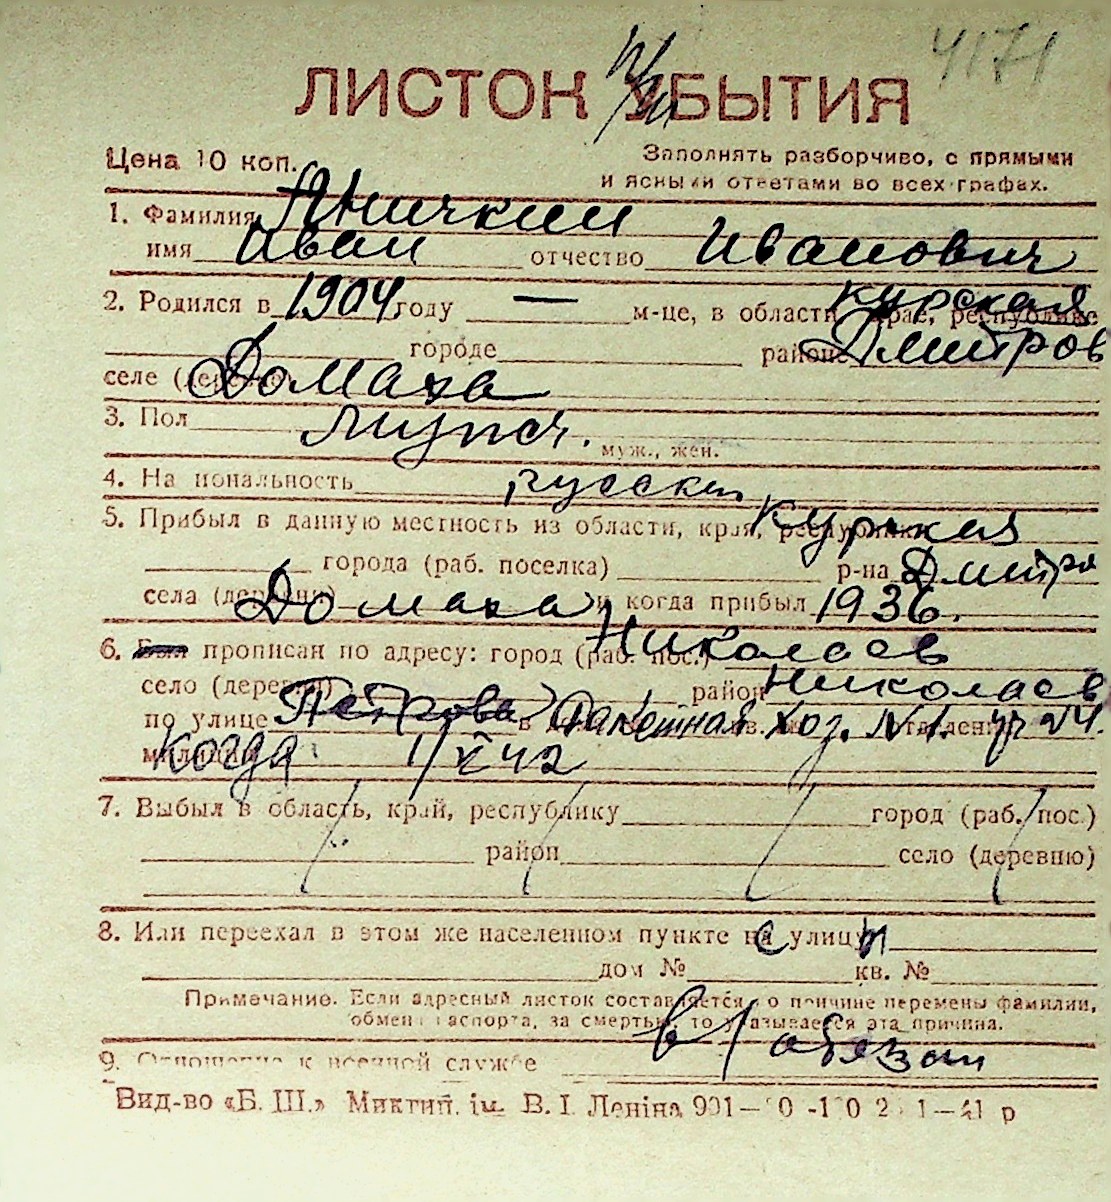 4171
ЛИСТОК УБЫТИЯ
Цена 10 коп.
Заполнять разборчиво, с прямыми
и ясными ответами во всех графах.
1. Фамилия Аничкин
имя Иван отчество Иванович
2. Родился в 1904 году — м-це, в области, крае, республике Курская
городе районе Дмитров
селе (деревне) Домаха
3. Пол Мужч.
муж., жен.
4. Национальность русский
5. Прибыл в данную местность из области, края, республики Курская
города (раб. поселка) р-на Дмитро
села (деревни) Домаха и когда прибыл 1936.
6. Был прописан по адресу: город (раб. пос.) Николаев
село (деревня) район Николаев
по улице Петрова в хоз. №1. №4.
милиции Когда 1/V 42
7. Выбыл в область, край, республику город (раб. пос.)
район село (деревню)
8. Или переехал в этом же населенном пункте на улицу
дом № кв. №
Примечание. Если адресный листок составляется по причине перемены фамилии,
обмена паспорта, за смертью, то указывается эта причина.
9. Отношение к военной службе в/обязан
Вид-во «Б. Ш.» Миктип. ім. В. І. Леніна